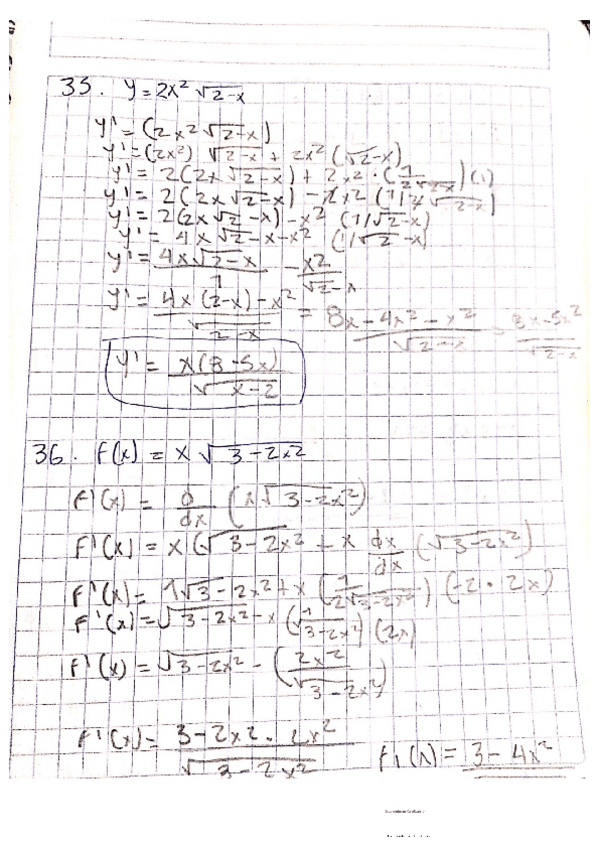 33. y = 2x² √2-x
y' = (2x² √2-x)
y' = (2x²) √2-x + 2x² (√2-x)
y' = 2(2x √2-x) + 2x² · (1/2√2-x)(1)
y' = 2(2x √2-x) - 2x² (1/2√2-x)
y' = 2(2x √2-x) - x² (1/√2-x)
y' = 4x √2-x - x² (1/√2-x)
y' = 4x√2-x/1 - x2/√2-x
y' = 4x(2-x) - x²/√2-x = 8x - 4x² - x²/√2-x = 8x-5x²/√2-x
y' = x(8-5x)/√x-2
36. f(x) = x √3-2x2
f'(x) = d/dx (x√3-2x²)
f'(x) = x (√3-2x² - x dx/dx (√3-2x²)
f'(x) = 1√3-2x² + x (1/2√3-2x²) (-2·2x)
f'(x) = √3-2x² - x (√1/3-2x²) (2x)
f'(x) = √3-2x² - (2x²/√3-2x²)
f'(x) = 3-2x2 - 2x²/√3-2x²
f1(x) = 3-4x²